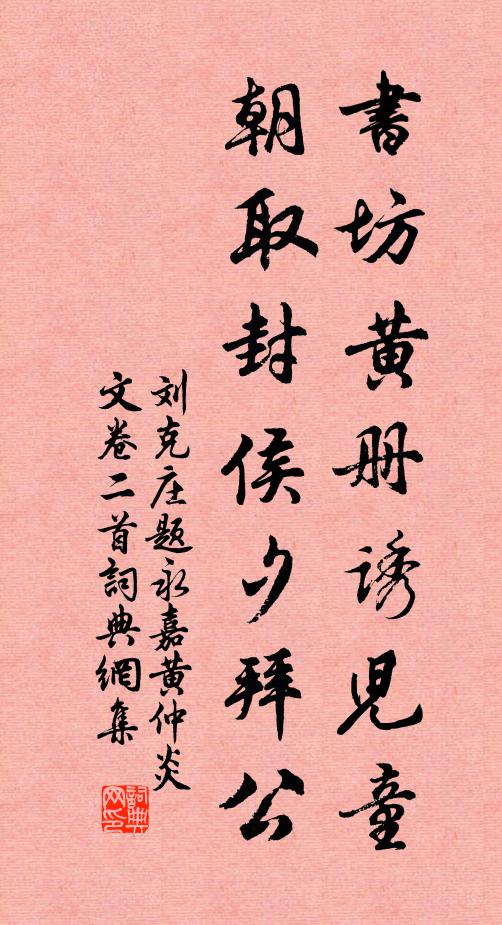 書坊黄册誘児童
朝取封侯夕拜公
刘克庄题永嘉黄仲炎
文卷二首詞典網集
詞典网印